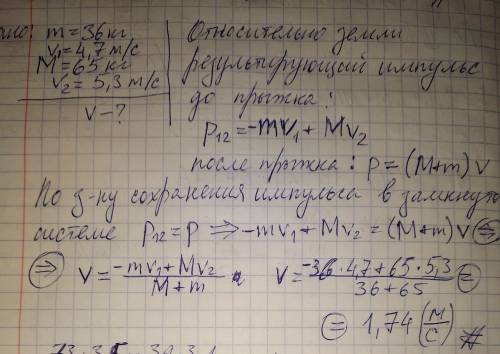 m = 36 кг
v₁ = 4,7 м/с
M = 65 кг
v₂ = 5,3 м/с
v – ?
Относительно земли
результирующий импульс
до прыжка:
p₁₂ = -mv₁ + Mv₂
после прыжка: p = (M+m) v
По з-ну сохранения импульса в замкнуто
системе p₁₂ = p ⟹ -mv₁ + Mv₂ = (M+m) v ⇔
⇒ v = (-mv₁ + Mv₂)/(M+m) v = (-36·4,7 + 65·5,3)/(36+65) =
= 1,74 (м/с) #